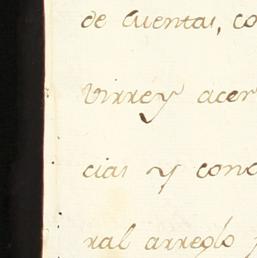 de cuentas, co
Virrey acer
cias y conc
ral arreglo